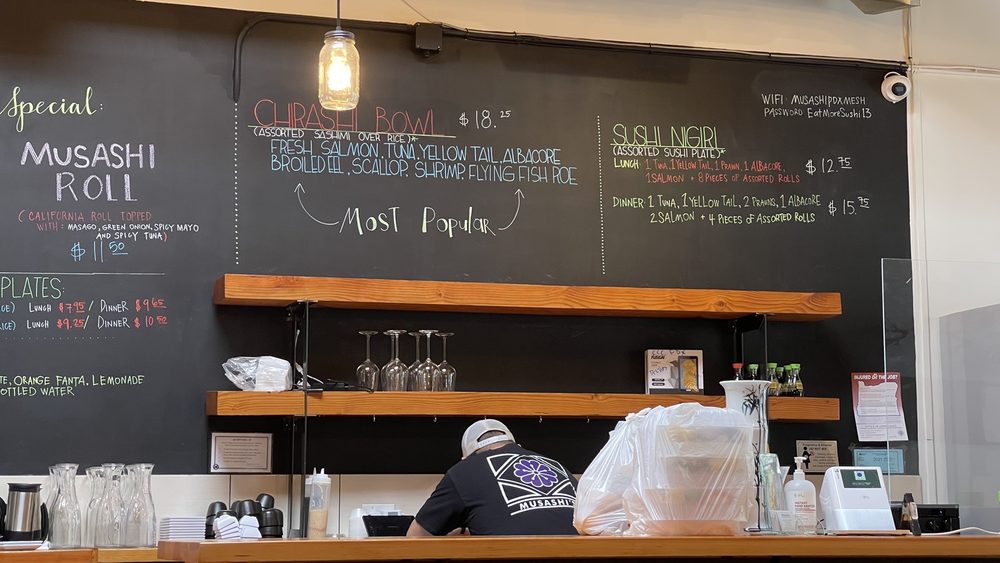 Special:
MUSASHI
ROLL
(CALIFORNIA ROLL TOPPED
WITH: MASAGO, GREEN ONION, SPICY MAYO
AND SPICY TUNA)
$11.50
PLATES:
LUNCH $7.95 / DINNER $9.65
LUNCH $9.25 / DINNER $10.50
ORANGE FANTA, LEMONADE
WATER
CHIRASHI BOWL $18.25
(ASSORTED SASHIMI OVER RICE)*
FRESH SALMON, TUNA, YELLOW TAIL, ALBACORE
BROILED EEL, SCALLOP, SHRIMP, FLYING FISH ROE
Most Popular
WIFI: MUSASHIPDXMESH
PASSWORD EatMoreSushi13
SUSHI NIGIRI
(ASSORTED SUSHI PLATE)*
LUNCH: 1 TUNA, 1 YELLOW TAIL, 1 PRAWN, 1 ALBACORE,
1 SALMON + 8 PIECES OF ASSORTED ROLLS
$12.75
DINNER: 1 TUNA, 1 YELLOW TAIL, 2 PRAWNS, 1 ALBACORE
2 SALMON + 4 PIECES OF ASSORTED ROLLS
$15.95
INJURED ON THE JOB?
MUSASHI'S